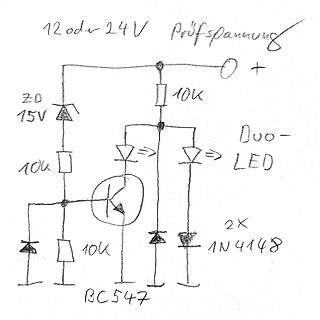 12 oder 24V Prüfspannung
+
ZD
15V
10K
Duo-
LED
10K
2x
1N4148
10K
BC547